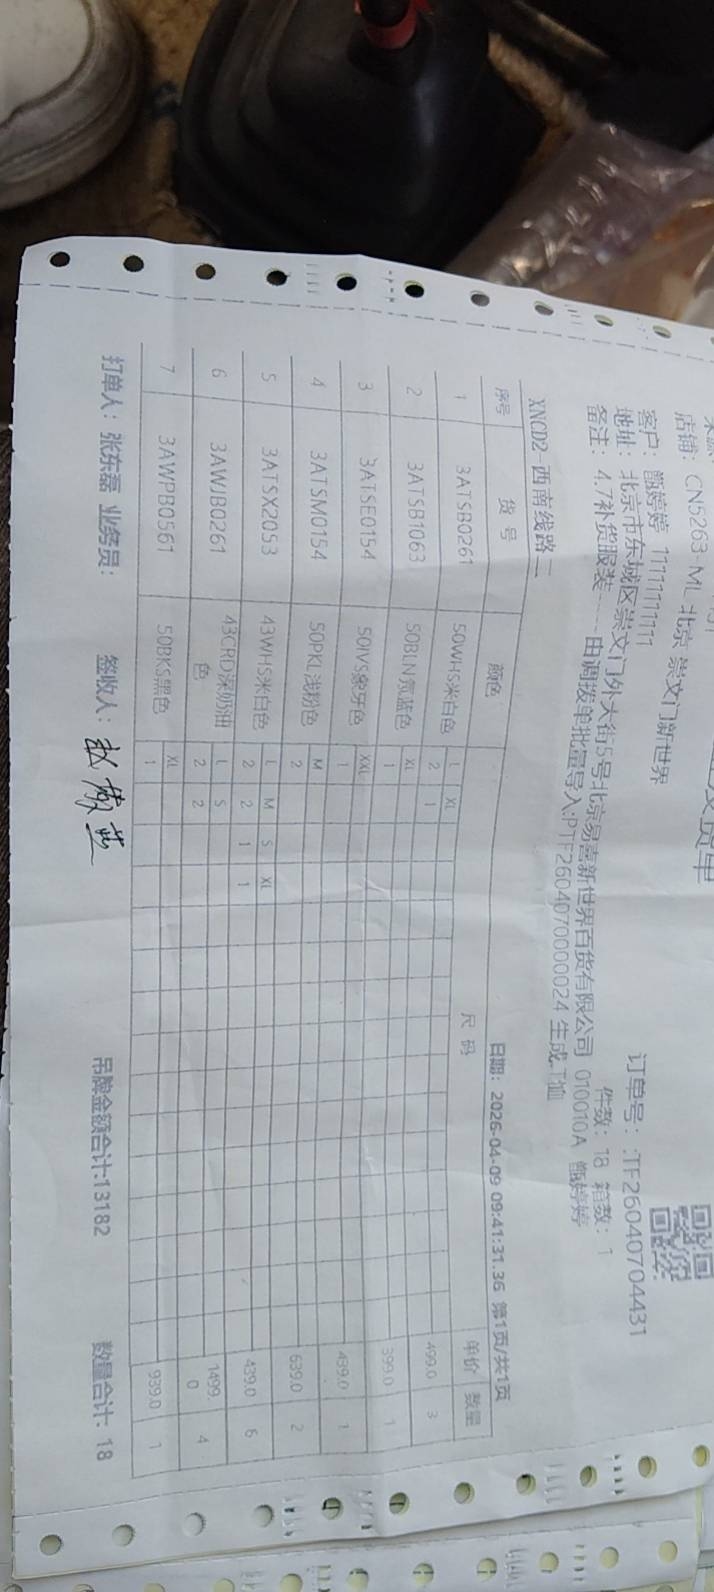 发货单
订单号：:TF26040704431
店铺：CN5263-ML-北京 崇文门新世界
件数：18 箱数：1
客户：甑婷婷 11111111111
地址：北京市东城区崇文门外大街5号北京易喜新世界百货有限公司 010010A 甑婷婷
备注：4.7补货服装----由调拨单批量导入:PTF2604070000024 生成,T恤
XNCD2-西南线路二
日期：2026-04-09 09:41:31.36 第1页/共1页
序号 货号 颜色 尺码 单价 数量
1 3ATSB0261 50WHS米白色 L XL 499.0 3
2 1
2 3ATSB1063 50BLN氖蓝色 XL 399.0 1
1
3 3ATSE0154 50IVS象牙色 XXL 489.0 1
1
4 3ATSM0154 50PKL浅粉色 M 639.0 2
2
5 3ATSX2053 43WHS米白色 L M S XL 439.0 6
2 2 1 1
6 3AWJB0261 43CRD深奶油 L S 1499. 4
色 2 2 0
7 3AWPB0561 50BKS黑色 XL 939.0 1
1
打单人：张东磊 业务员： 签收人： 吊牌金额合计:13182 数量合计：18